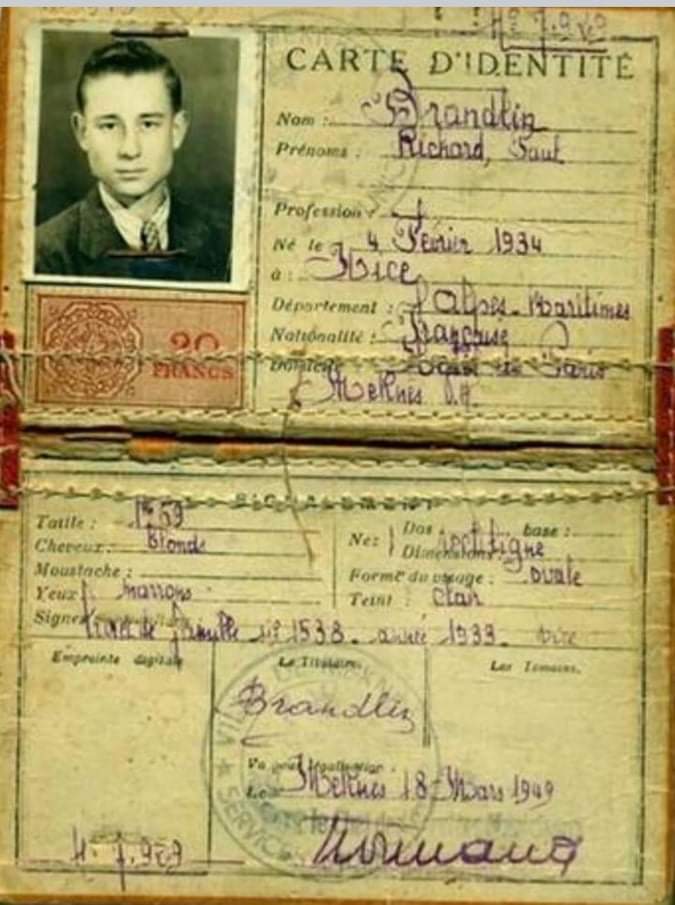 Nº 7.929
CARTE D'IDENTITÉ
Nom : Brandlin
Prénoms : Richard, Paul
Profession :
Né le 4 Février 1934
à : Nice
Département : Alpes-Maritimes
Nationalité : Française
Domicile
Meknès V.N.
20
FRANCS
SIGNALEMENT
Taille : 1m59
Cheveux : blonds
Moustache :
Yeux : marrons
Nez : Dos rectiligne base :
Dimensions :
Forme du visage : ovale
Teint : clair
Signes
Livret de famille nº 1538. année 1933. Nice
Empreinte digitale
Le Titulaire,
Les Témoins,
Brandlin
Vu pour légalisation :
Le Meknès 18 Mars 1949
Nº 7.929